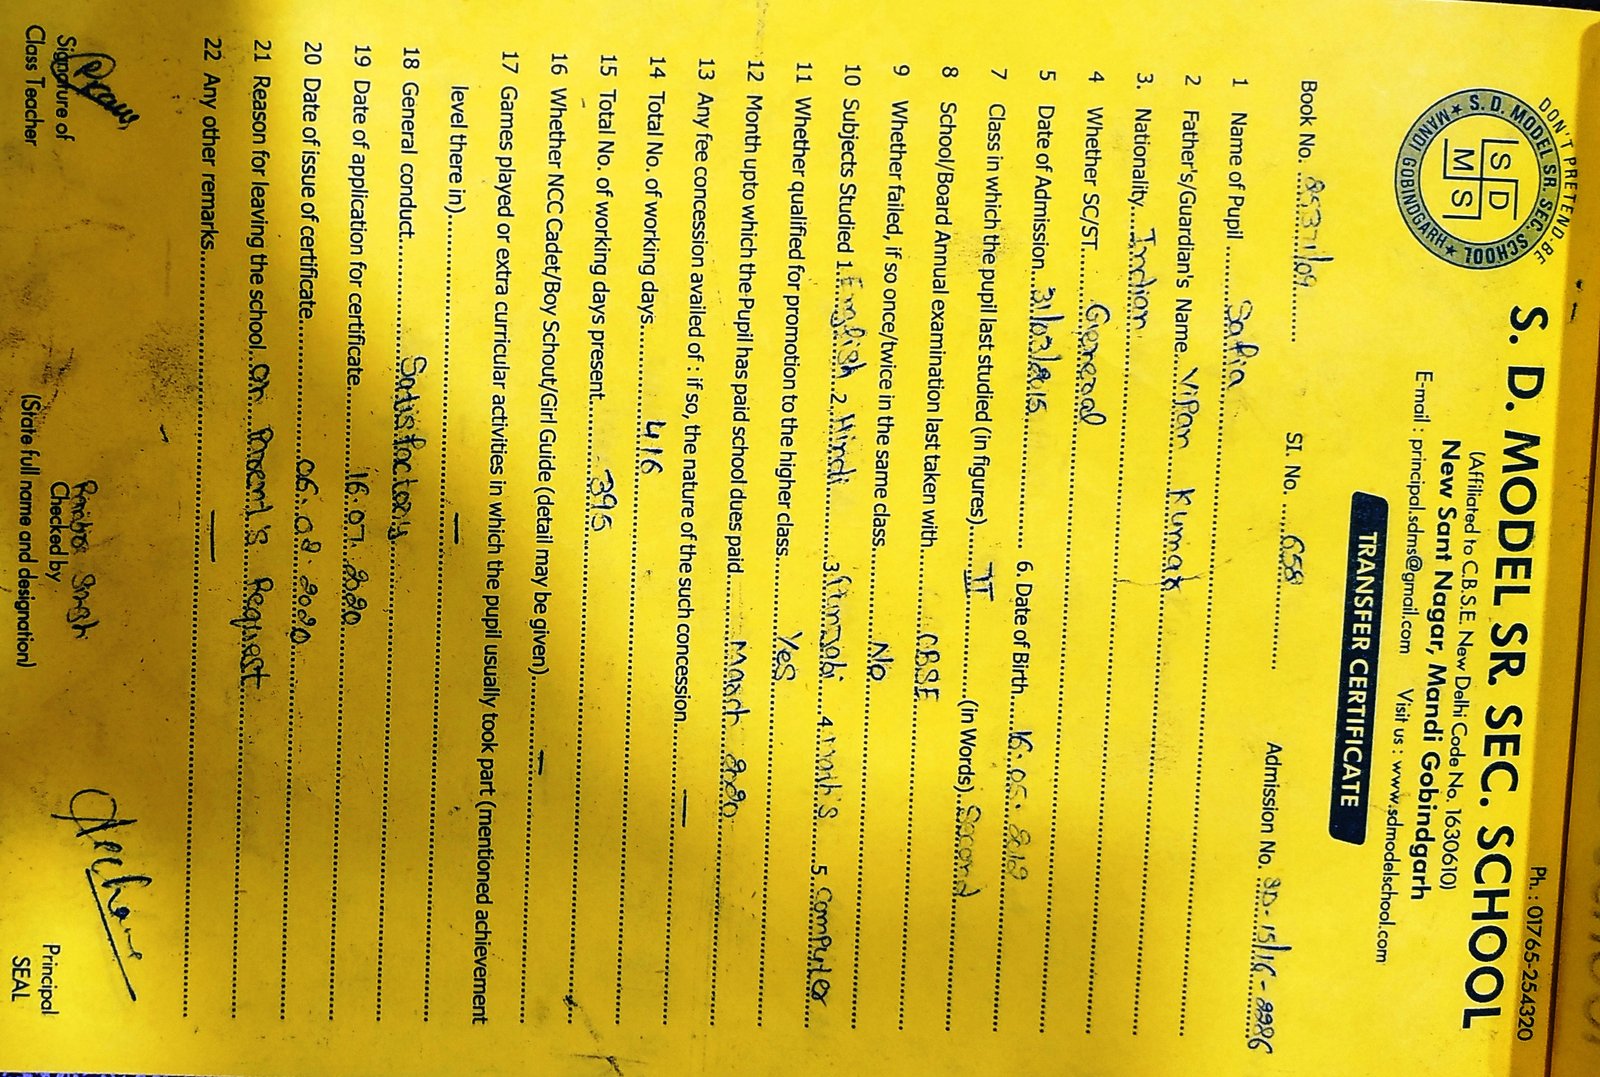 DON'T PRETEND-BE
S. D. MODEL SR. SEC. SCHOOL
★ MANDI GOBINDGARH ★
S D
M S
Ph : 01765-254320
S. D. MODEL SR. SEC. SCHOOL
(Affiliated to C.B.S.E. New Delhi Code No. 1630610)
New Sant Nagar, Mandi Gobindgarh
E-mail : principal.sdms@gmail.com Visit us : www.sdmodelschool.com
TRANSFER CERTIFICATE
Book No. 8537/09 Sl. No. 658 Admission No. SD-15/16-2286
1 Name of Pupil Safia
2 Father's/Guardian's Name Vipan Kumar
3. Nationality Indian
4 Whether SC/ST General
5 Date of Admission 31/03/2015 6. Date of Birth 16.05.2012
7 Class in which the pupil last studied (in figures) II (in Words) Second
8 School/Board Annual examination last taken with CBSE
9 Whether failed, if so once/twice in the same class No
10 Subjects Studied 1. English 2. Hindi 3. Punjabi 4. Math's 5. Computer
11 Whether qualified for promotion to the higher class Yes
12 Month upto which the Pupil has paid school dues paid March 2020
13 Any fee concession availed of : if so, the nature of the such concession —
14 Total No. of working days 416
15 Total No. of working days present 395
16 Whether NCC Cadet/Boy Schout/Girl Guide (detail may be given) —
17 Games played or extra curricular activities in which the pupil usually took part (mentioned achievement
level there in) —
18 General conduct Satisfactory
19 Date of application for certificate 16.07.2020
20 Date of issue of certificate 06.08.2020
21 Reason for leaving the school On Parent's Request
22 Any other remarks —
Signature of
Class Teacher
Singh
Checked by
(State full name and designation)
Principal
SEAL